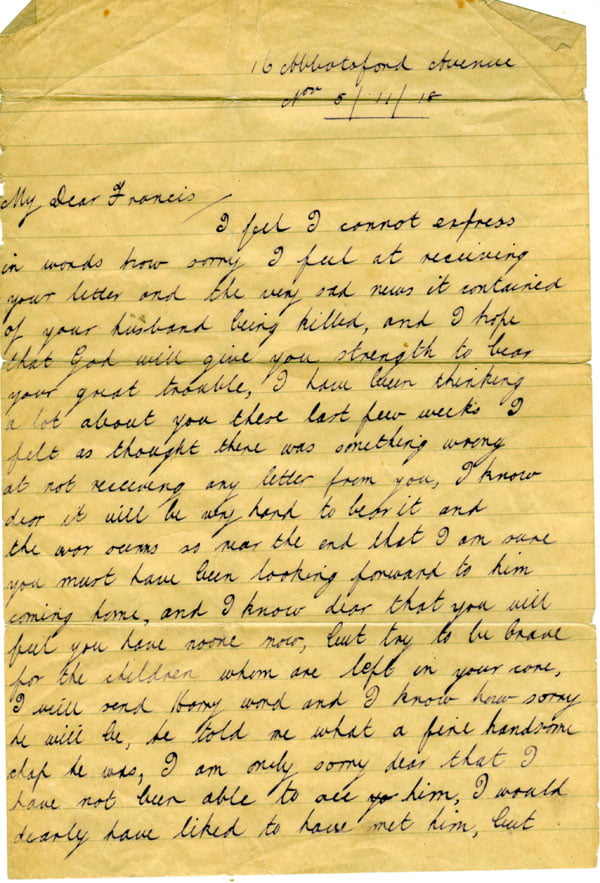 16 Abbotsford Avenue
Nov 5/11/18
My Dear Francis
I feel I cannot express
in words how sorry I feel at receiving
your letter and the very sad news it contained
of your husband being killed, and I hope
that God will give you strength to bear
your great trouble, I have been thinking
a lot about you these last few weeks I
felt as thought there was something wrong
at not receiving any letter from you, I know
dear it will be very hard to bear it and
the war seems so near the end that I am sure
you must have been looking forward to him
coming home, and I know dear that you will
feel you have noone now, but try to be brave
for the children whom are left in your care,
I will send Harry word and I know how sorry
he will be, he told me what a fine handsome
chap he was, I am only sorry dear that I
have not been able to see him, I would
dearly have liked to have met him, but